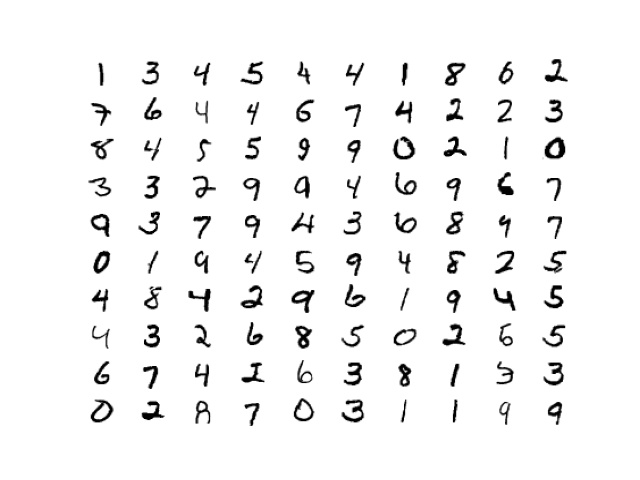 1 3 4 5 4 4 1 8 6 2
7 6 4 4 6 7 4 2 2 3
8 4 5 5 9 9 0 2 1 0
3 3 2 9 9 4 6 9 6 7
9 3 7 9 4 3 6 8 9 7
0 1 9 4 5 9 4 8 2 5
4 8 4 2 9 6 1 9 4 5
4 3 2 6 8 5 0 2 6 5
6 7 4 2 6 3 8 1 3 3
0 2 8 7 0 3 1 1 9 9